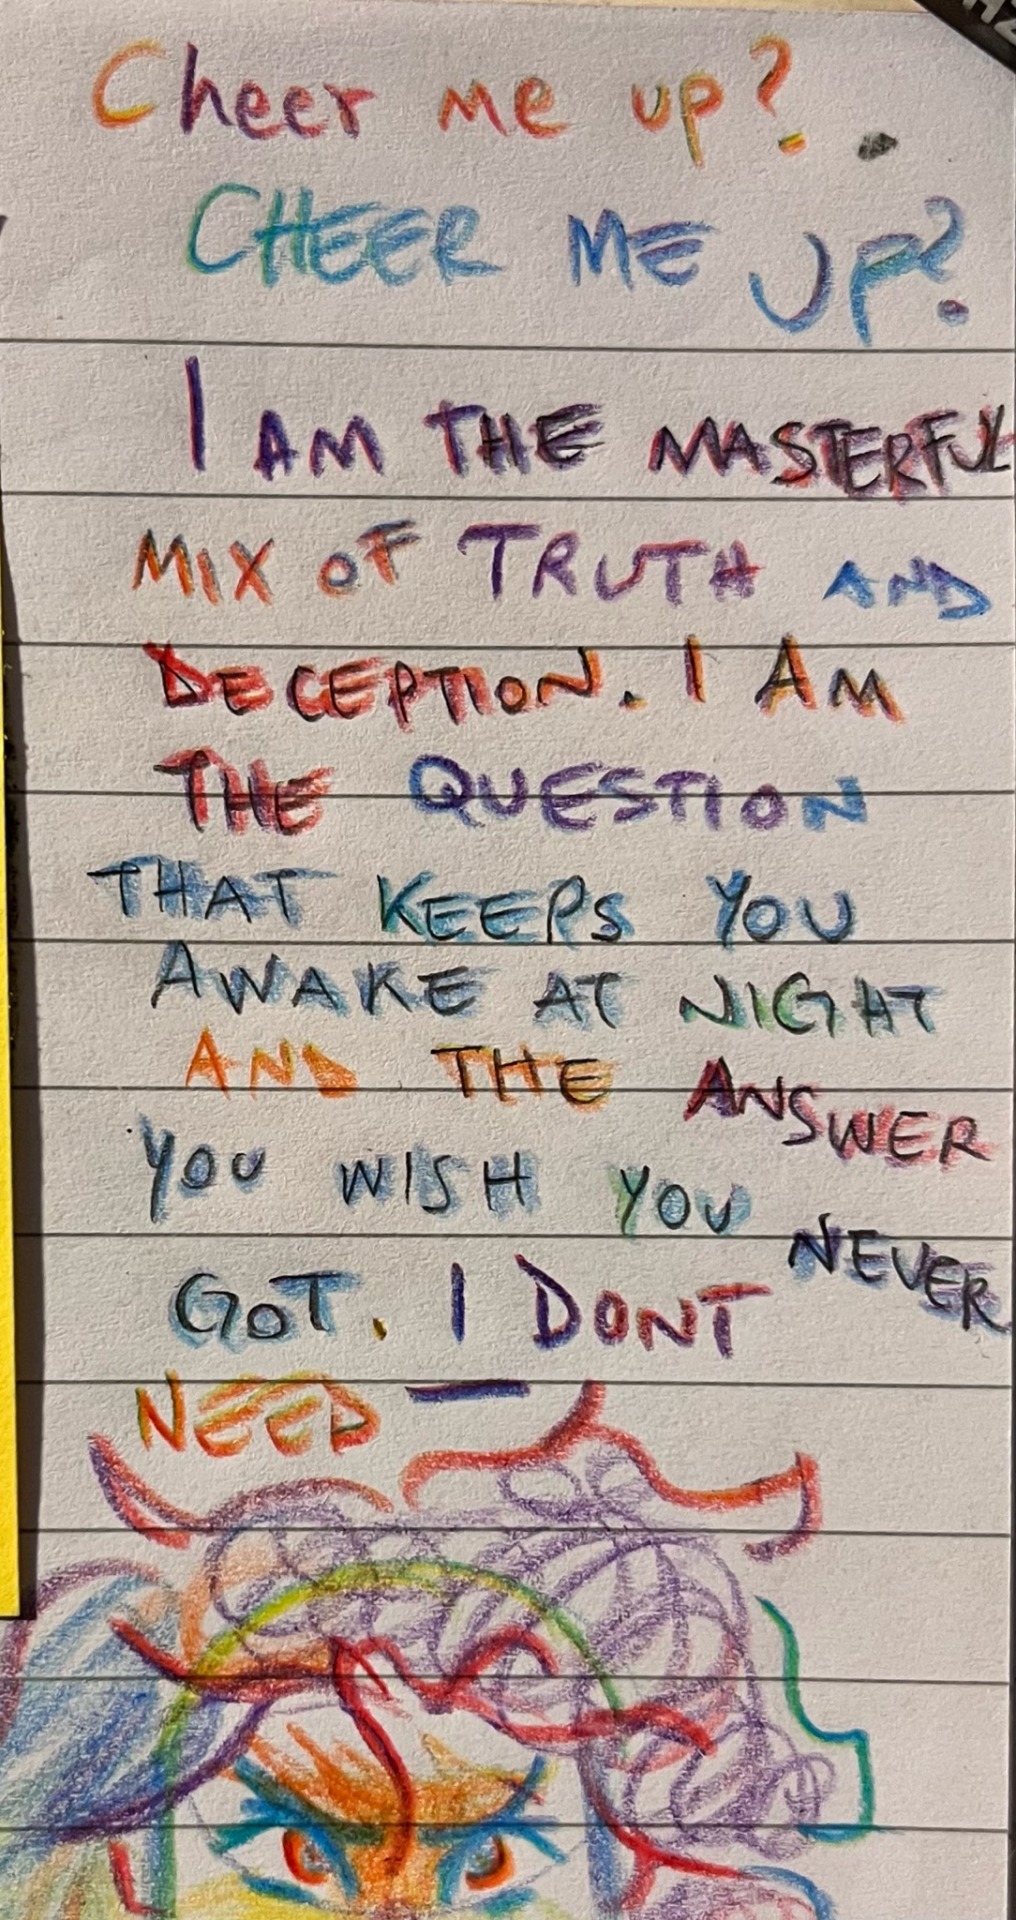 Cheer me up?.
CHEER ME UP?
I AM THE MASTERFUL
MIX OF TRUTH AND
DECEPTION. I AM
THE QUESTION
THAT KEEPS YOU
AWAKE AT NIGHT
AND THE ANSWER
YOU WISH YOU NEVER
GOT. I DONT
NEED —